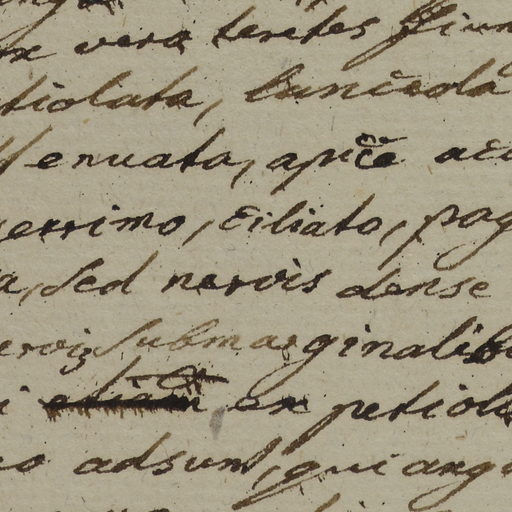 ex vera teretes fiun
tiolata, lanceola
enuata, apice acu
gerrimo, ciliato, pag
a, sed nervis dense
ervis submarginalib
i etiam ex petiol
co adsunt, qui ang